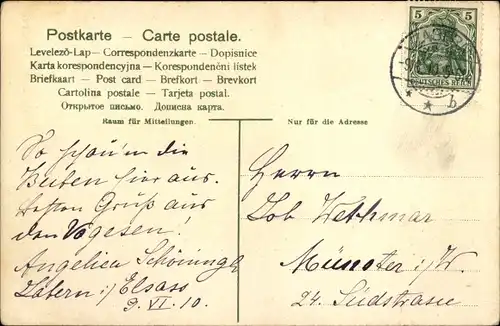 Postkarte — Carte postale.
Levelező-Lap — Correspondenzkarte — Dopisnice
Karta korespondencyjna — Korespondenční lístek
Briefkaart — Post card — Brefkort — Brevkort
Cartolina postale — Tarjeta postal.
Открытое письмо. Дописна карта.
Raum für Mitteilungen.
Nur für die Adresse
5 5
DEUTSCHES REICH
* * b
So schau'n die
Beiden hier aus.
Besten Gruß aus
den Vogesen!
Angelica Schöningh
Zabern i/Elsass
9. VI. 10.
Herrn
Job Wethmar
Münster i/W.
24. Südstrasse